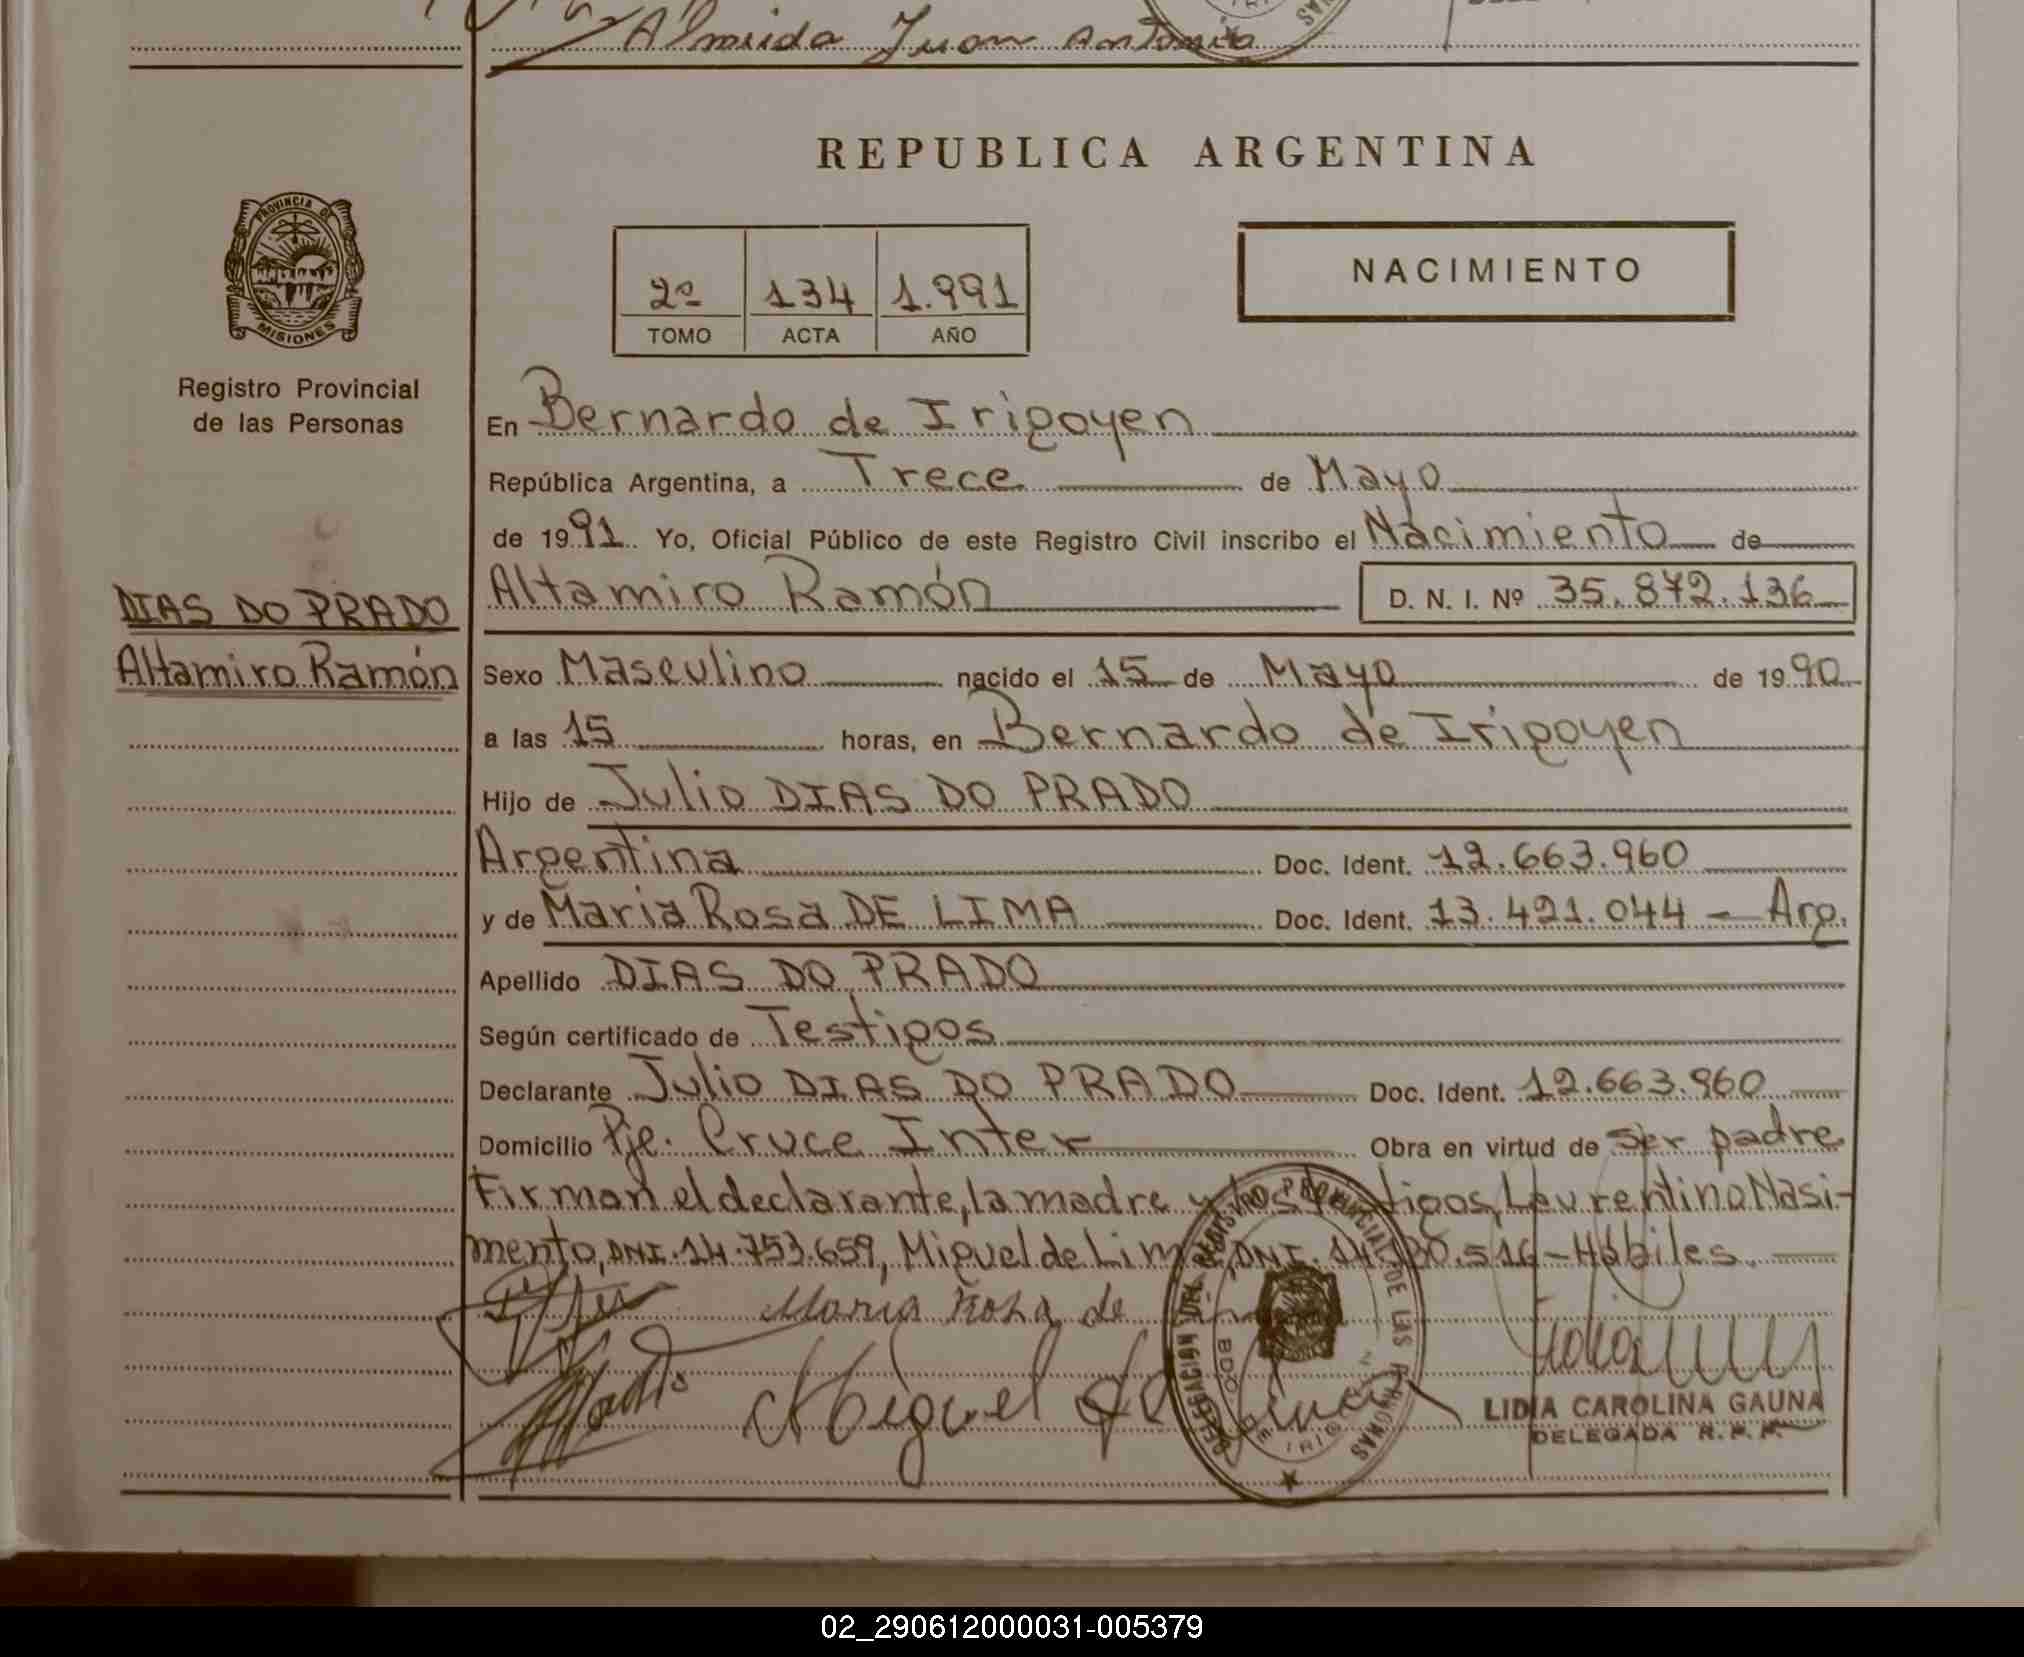 Almeida Juan Antonio
REPUBLICA ARGENTINA
PROVINCIA DE
MISIONES
Registro Provincial
de las Personas
2º 134 1.991
TOMO ACTA AÑO
NACIMIENTO
En Bernardo de Irigoyen
República Argentina, a Trece de Mayo
de 1991 Yo, Oficial Público de este Registro Civil inscribo el Nacimiento de
Altamiro Ramón D. N. I. Nº 35.872.136
DIAS DO PRADO
Altamiro Ramón
Sexo Masculino nacido el 15 de Mayo de 1990
a las 15 horas, en Bernardo de Irigoyen
Hijo de Julio DIAS DO PRADO
Argentina Doc. Ident. 12.663.960
y de Maria Rosa DE LIMA Doc. Ident. 13.421.044 - Arg.
Apellido DIAS DO PRADO
Según certificado de Testigos
Declarante Julio DIAS DO PRADO Doc. Ident. 12.663.960
Domicilio Pje. Cruce Inter Obra en virtud de ser padre
Firman el declarante, la madre y los testigos, Laurentino Nasi-
mento, DNI. 14.753.659, Miguel de Lima, DNI. 516 - Hábiles.
Maria Rosa de
Miguel de Lima
DELEGACION DEL REGISTRO PROVINCIAL DE LAS PERSONAS
BDO DE IRIGOYEN
LIDIA CAROLINA GAUNA
DELEGADA R.P.P.
02_290612000031-005379